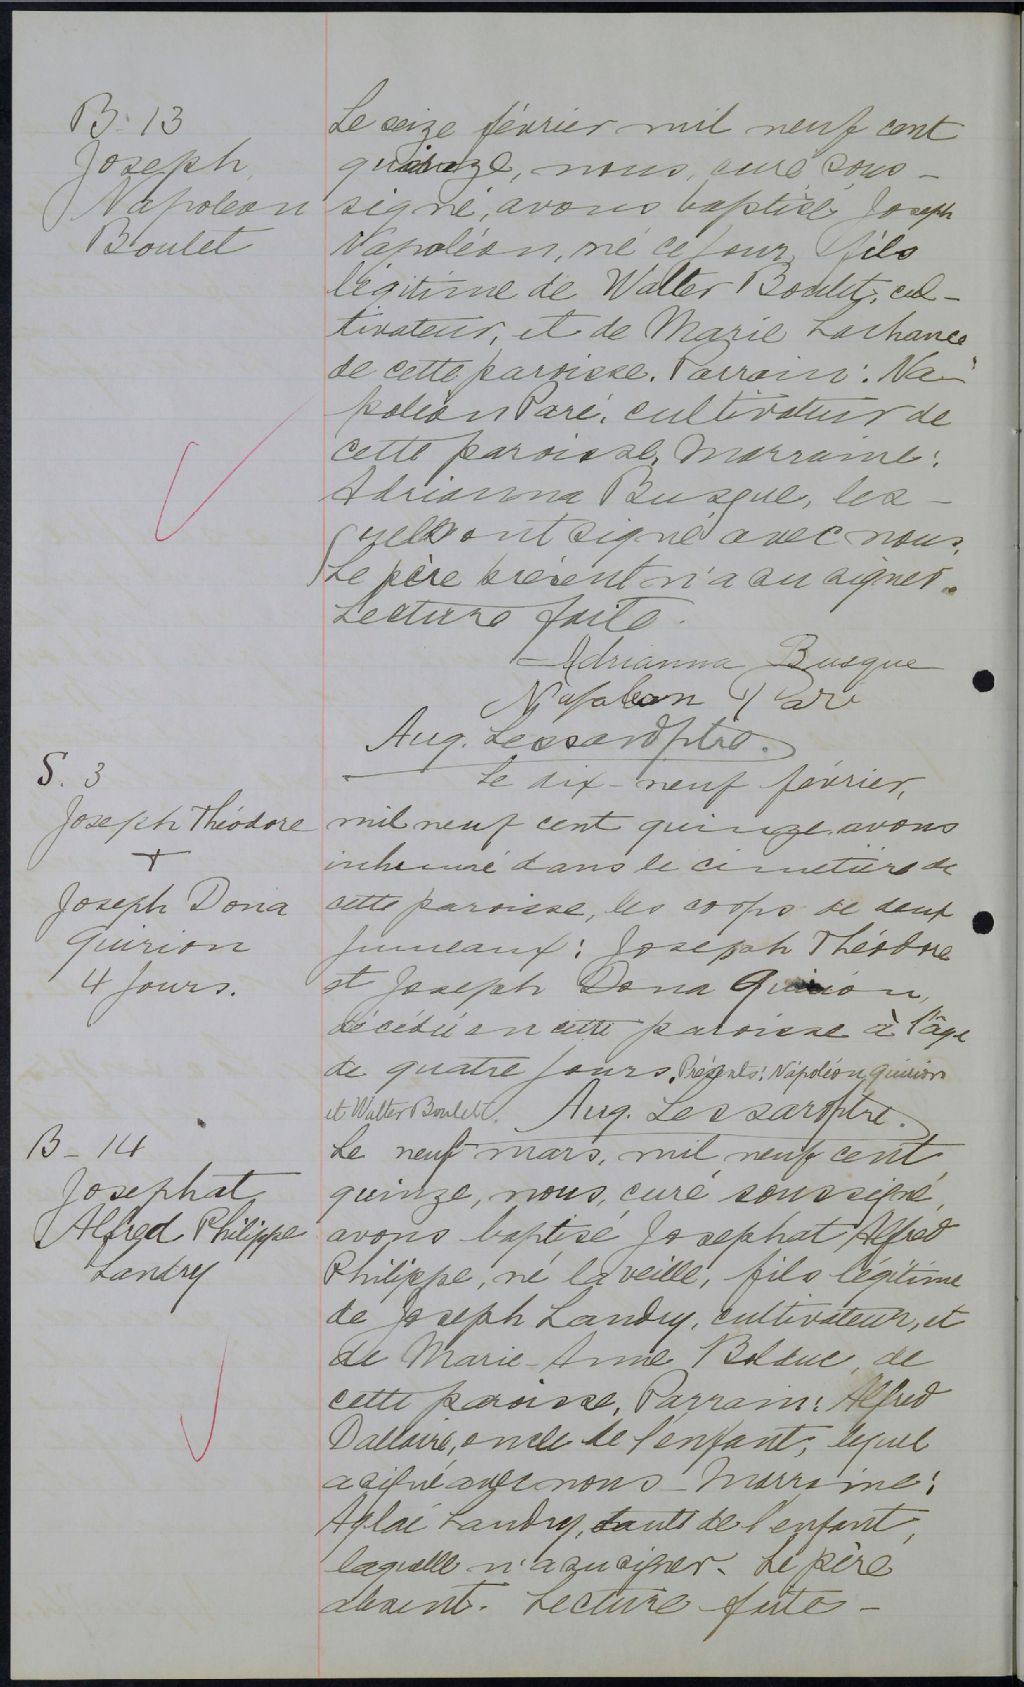 B. 13
Joseph
Napoléon
Boulet
Le seize février mil neuf cent
quinze, nous, curé sous-
signé, avons baptisé Joseph
Napoléon, né ce jour, fils
légitime de Walter Boulet, cul-
tivateur, et de Marie Lachance
de cette paroisse. Parrain: Na-
poléon Paré, cultivateur de
cette paroisse, Marraine:
Adrianna Busque, les-
quels ont signé avec nous.
Le père présent n'a su signer.
Lecture faite.
Adrianna Busque
Napoleon Paré
Aug. Lessard ptre.
S. 3
Joseph Théodore
+
Joseph Dona
Quirion
4 jours.
Le dix-neuf février,
mil neuf cent quinze avons
inhumé dans le cimetière de
cette paroisse, les corps de deux
jumeaux: Joseph Théodore
et Joseph Dona Quirion,
décédé en cette paroisse à l'âge
de quatre jours. Présents: Napoléon Quirion
et Walter Boulet. Aug. Lessard ptre.
B - 14
Josephat
Alfred Philippe
Landry
Le neuf mars, mil neuf cent
quinze, nous, curé soussigné,
avons baptisé Josephat Alfred
Philippe, né la veille, fils légitime
de Joseph Landry, cultivateur, et
de Marie-Anne Bolduc, de
cette paroisse, Parrain: Alfred
Dallaire, oncle de l'enfant, lequel
a signé avec nous - Marraine:
Aglaé Landry, tante de l'enfant,
laquelle n'a su signer. Le père
absent. Lecture faite -